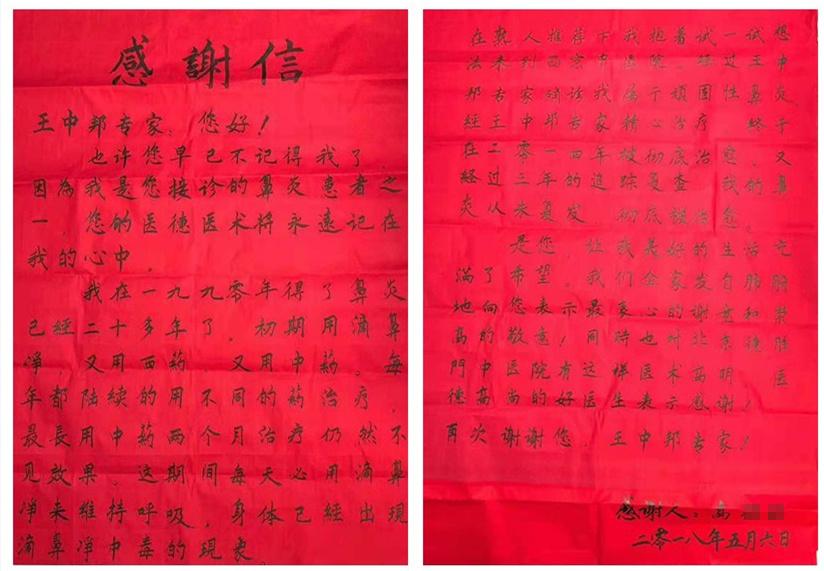 感謝信
王中邦专家：您好！
也许您早已不记得我了，
因為我是您接诊的鼻炎患者之
一，您的医德医术将永遠记在
我的心中。
我在一九九零年得了鼻炎
已經二十多年了。初期用滴鼻
净，又用西药，又用中药。每
年都陆续的用不同的药治疗，
最長用中药两个月治疗仍然不
见效果。这期间每天必用滴鼻
净来维持呼吸，身体已經出现
滴鼻净中毒的现衷。
在熟人推荐下我抱着试一试想
法来到西京中医院。经过王中
邦专家确诊我属于頑固性鼻炎，
經王中邦专家精心治疗，終于
在二零一四年被彻底治愈，又
経过三年的追踪复查，我的鼻
炎从未复发，彻底被治愈。
是您，让我美好的生活充
滿了希望。我们全家发自肺腑
地向您表示最衷心的谢意和崇
高的敬意！同時也对北京德胜
門中医院有这样医术高明，医
德高尚的好医生表示感谢！
再次谢谢您，王中邦专家！
感谢人：高
二零一八年五月六日